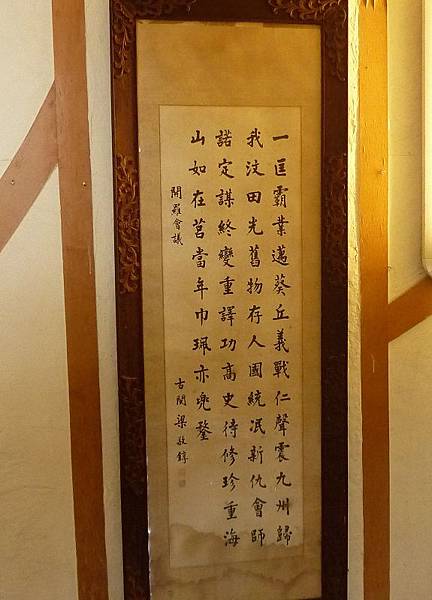 一匡霸業邁葵丘義戰仁聲震九州歸
我汶田光舊物存人國統泯新仇會師
諾定謀終變重譯功高史待修珍重海
山如在莒當年巾珮亦兜鍪
開羅會議
古閩梁敬錞